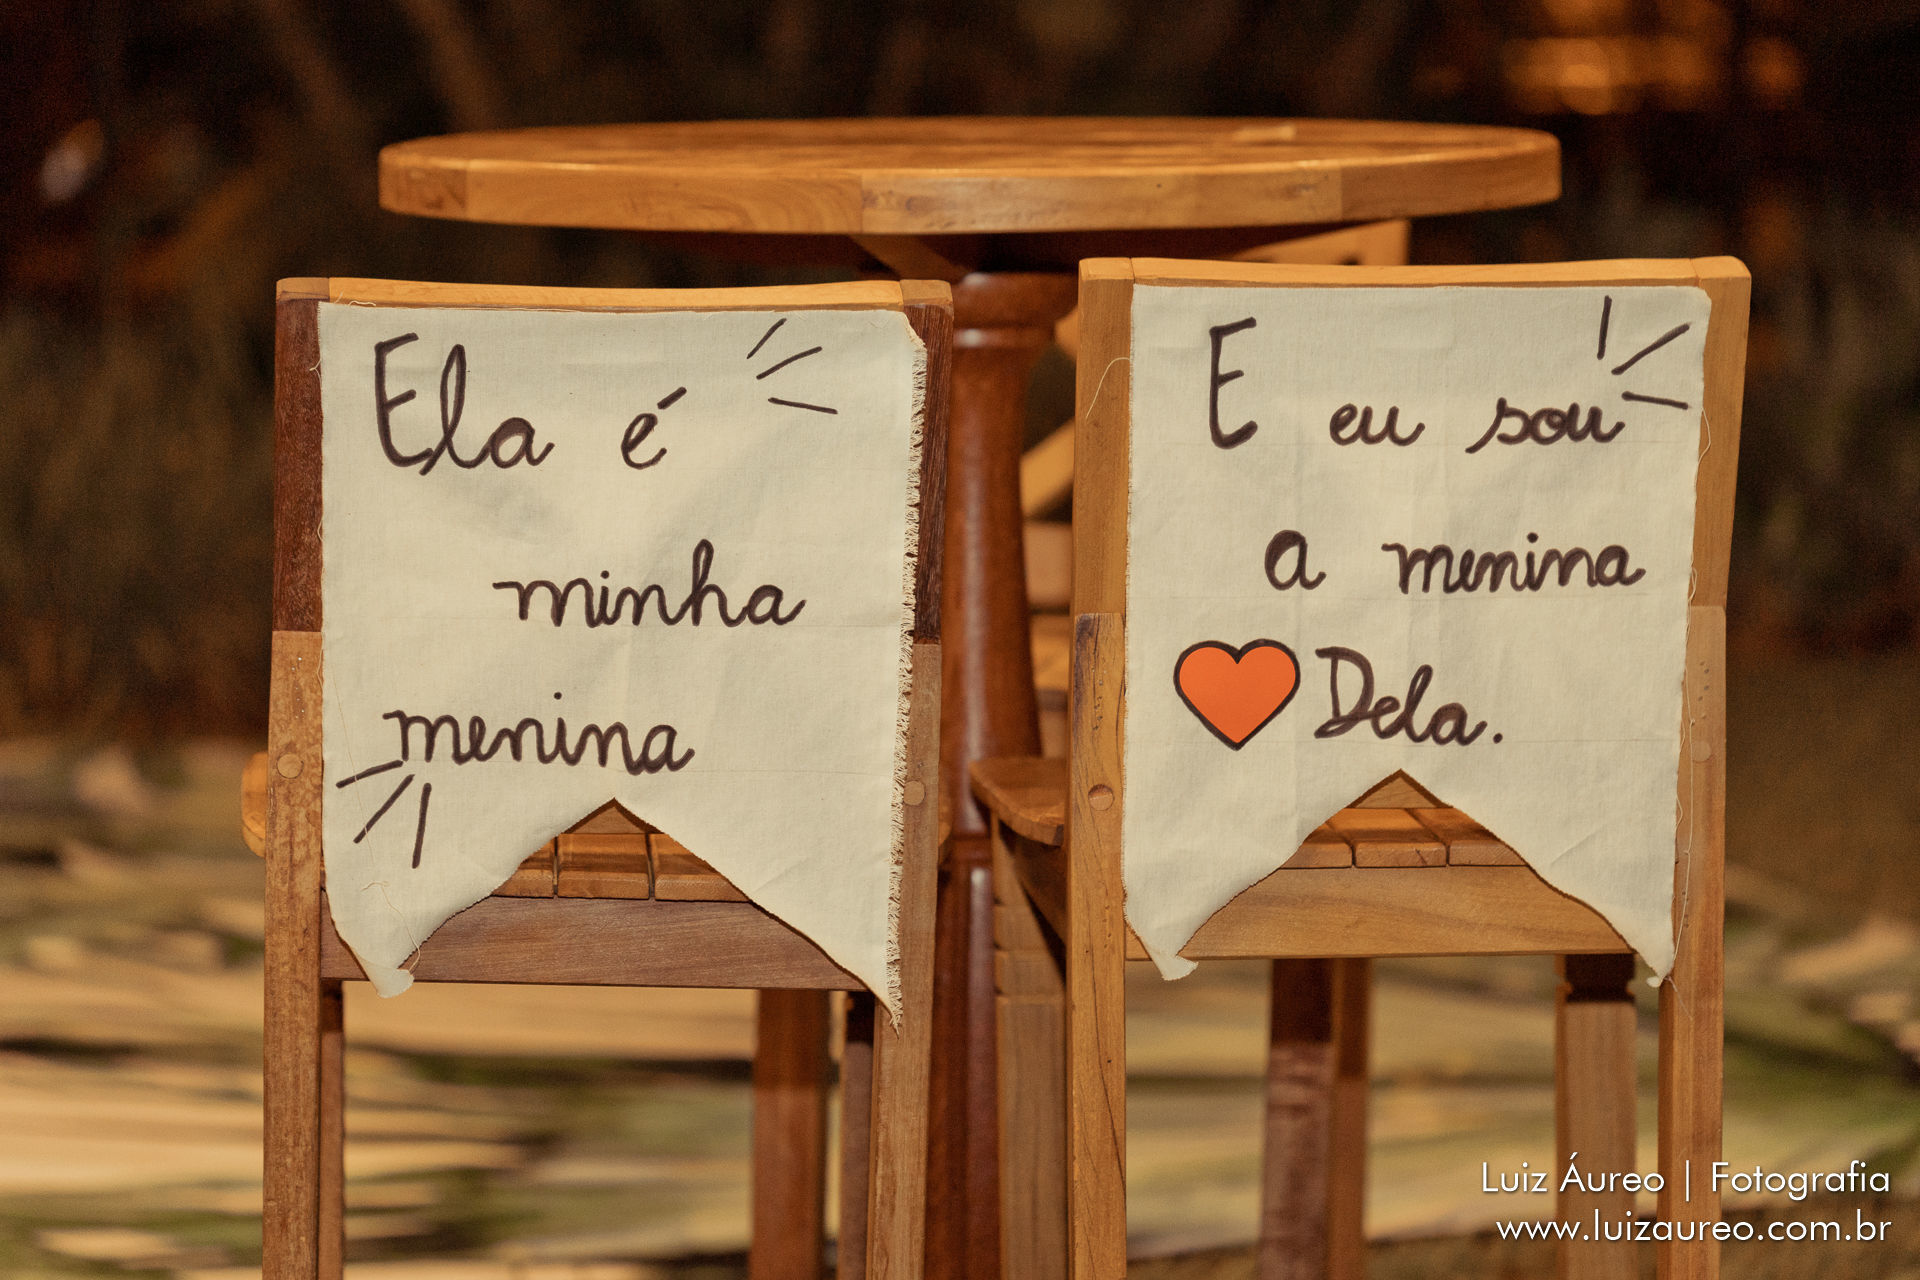 Ela é
minha
menina
E eu sou
a menina
Dela.
Luiz Áureo | Fotografia
www.luizaureo.com.br